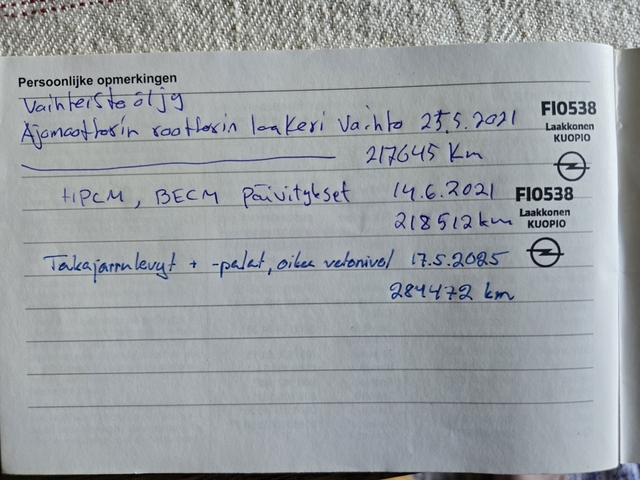 Persoonlijke opmerkingen
Vaihteisto öljy
Ajomoottorin roottorin laakeri vaihto 25.5.2021
FI0538
Laakkonen
KUOPIO
217645 Km
HPCM, BECM päivitykset 14.6.2021
FI0538
Laakkonen
KUOPIO
218512 km
Takajarrulevyt + -palat, oikea vetonivel 17.5.2025
284472 km